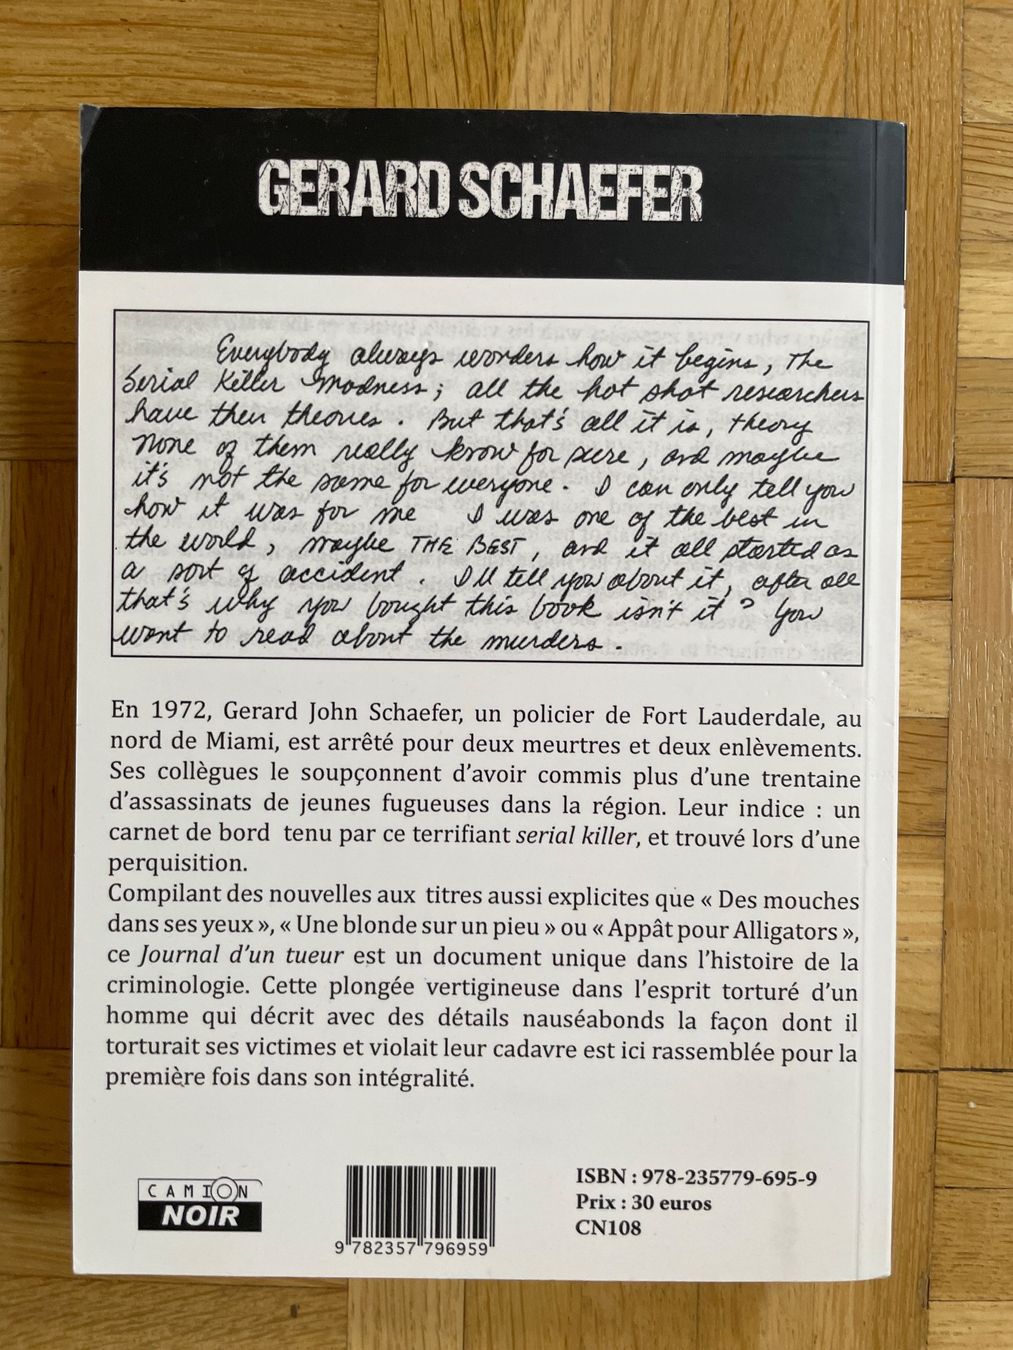 GERARD SCHAEFER
Everybody always wonders how it begins, The
Serial Killer Madness; all the hot shot researchers
have their theories. But that's all it is, theory
None of them really know for sure, and maybe
it's not the same for everyone. I can only tell you
how it was for me I was one of the best in
the world, maybe THE BEST, and it all started as
a sort of accident. I'll tell you about it, after all
that's why you bought this book isn't it? You
want to read about the murders.
En 1972, Gerard John Schaefer, un policier de Fort Lauderdale, au
nord de Miami, est arrêté pour deux meurtres et deux enlèvements.
Ses collègues le soupçonnent d'avoir commis plus d'une trentaine
d'assassinats de jeunes fugueuses dans la région. Leur indice : un
carnet de bord tenu par ce terrifiant serial killer, et trouvé lors d'une
perquisition.
Compilant des nouvelles aux titres aussi explicites que « Des mouches
dans ses yeux », « Une blonde sur un pieu » ou « Appât pour Alligators »,
ce Journal d'un tueur est un document unique dans l'histoire de la
criminologie. Cette plongée vertigineuse dans l'esprit torturé d'un
homme qui décrit avec des détails nauséabonds la façon dont il
torturait ses victimes et violait leur cadavre est ici rassemblée pour la
première fois dans son intégralité.
CAMION
NOIR
9 782357 796959
ISBN : 978-235779-695-9
Prix : 30 euros
CN108